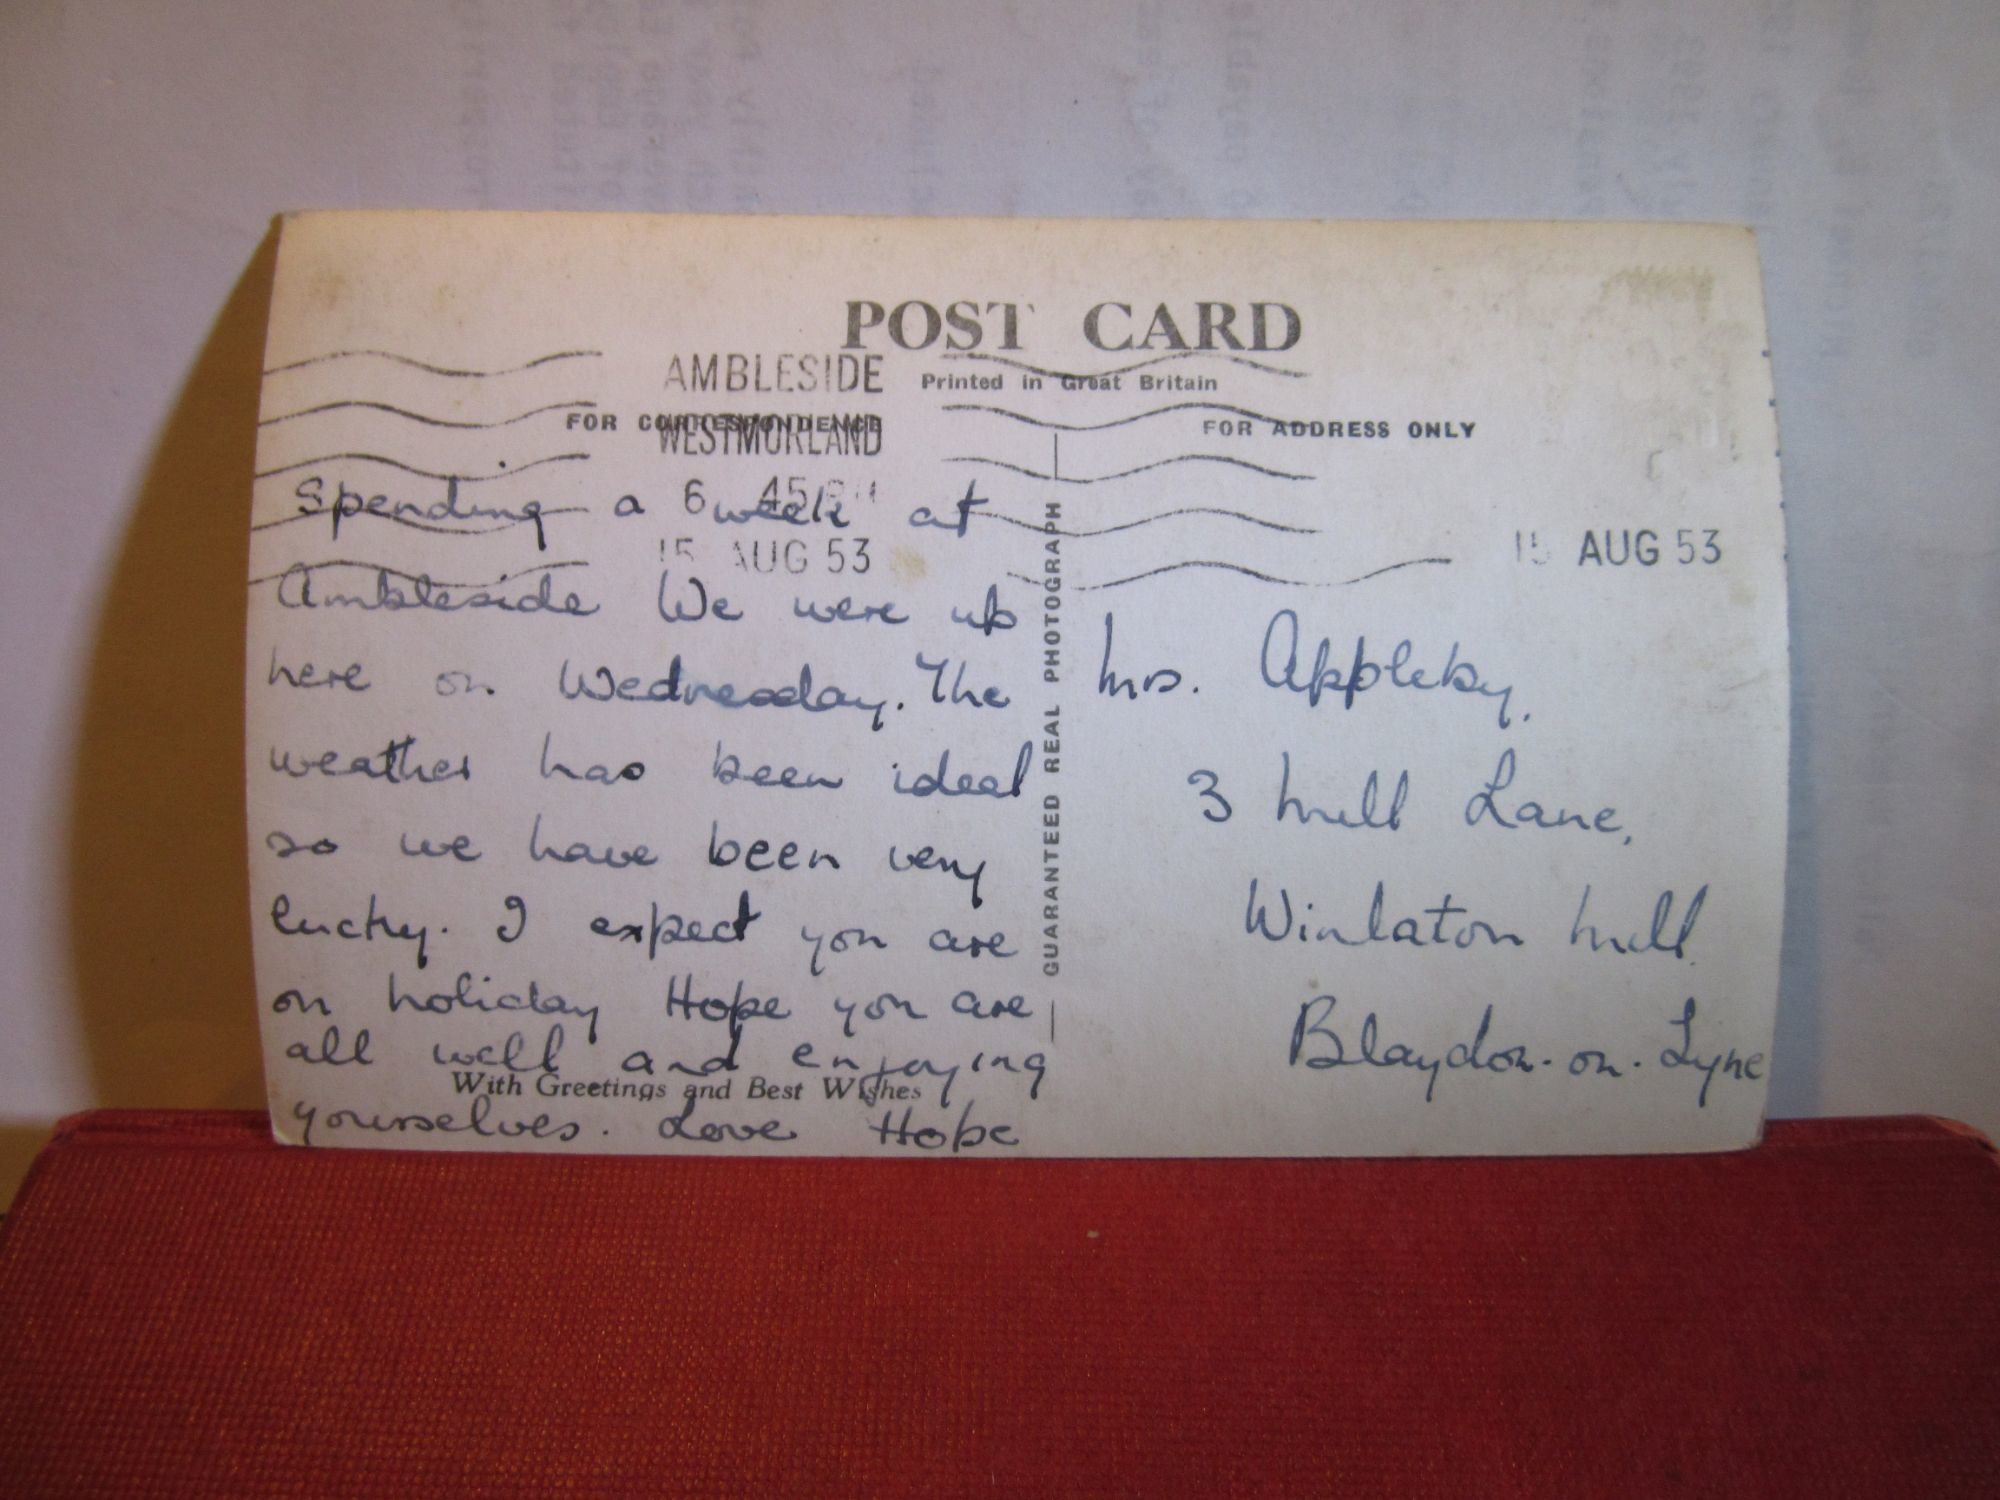 POST CARD
Printed in Great Britain
AMBLESIDE
WESTMORLAND
6 45 PM
15 AUG 53
15 AUG 53
FOR CORRESPONDENCE
FOR ADDRESS ONLY
Spending a week at
Ambleside We were up
here on Wednesday. The
weather has been ideal
so we have been very
lucky. I expect you are
on holiday Hope you are
all well and enjoying
yourselves. Love Hope
With Greetings and Best Wishes
GUARANTEED REAL PHOTOGRAPH
Mrs. Appleby,
3 Mill Lane,
Winlaton Mill
Blaydon-on-Tyne